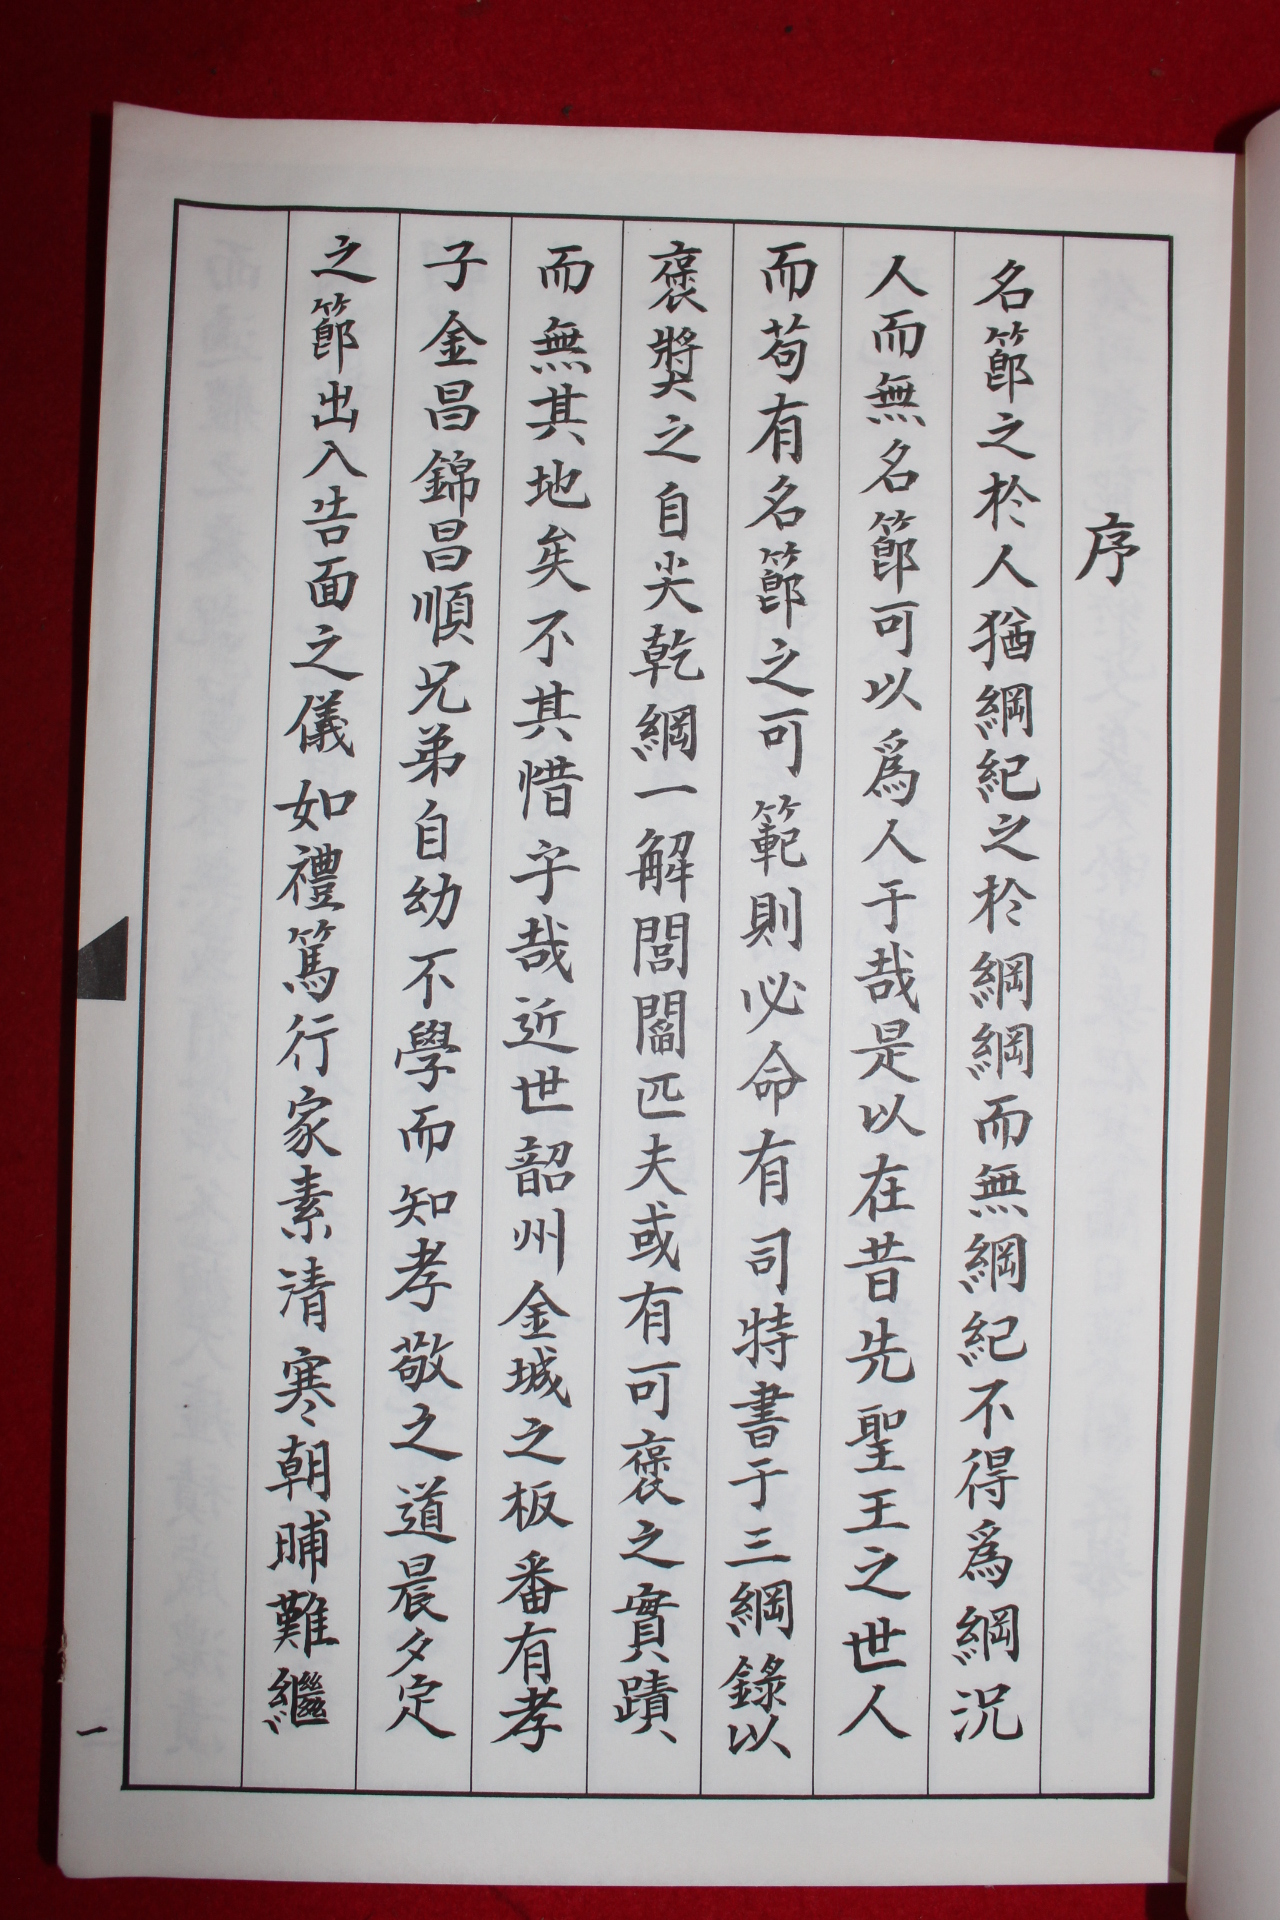 序
名節之於人猶綱紀之於綱綱而無綱紀不得爲綱況
人而無名節可以爲人于哉是以在昔先聖王之世人
而苟有名節之可範則必命有司特書于三綱錄以
褒獎之自尖乾綱一解閭閻匹夫或有可褒之實蹟
而無其地矣不其惜乎哉近世韶州金城之板番有孝
子金昌錦昌順兄弟自幼不學而知孝敬之道晨夕定
之節出入告面之儀如禮篤行家素清寒朝晡難繼
一